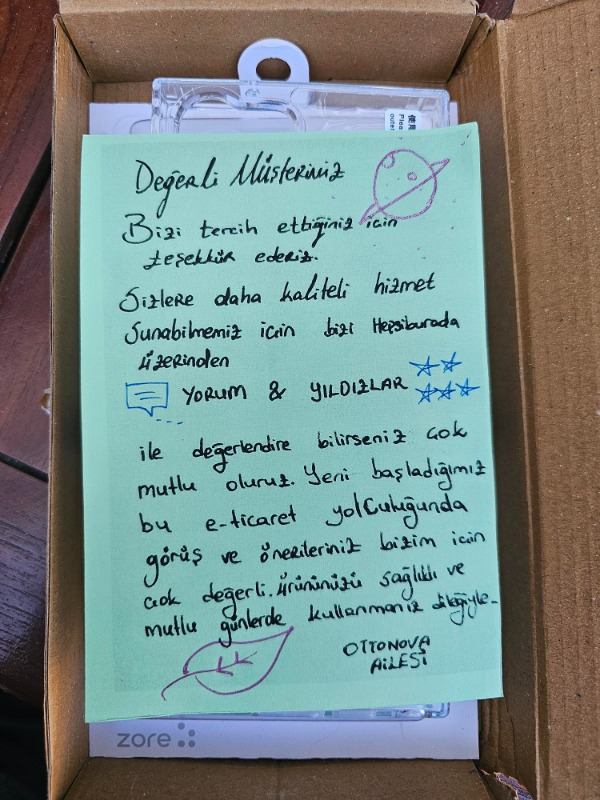 使用
Plea
outer
Değerli Müşterimiz
Bizi tercih ettiğiniz için
teşekkür ederiz.
Sizlere daha kaliteli hizmet
Sunabilmemiz için bizi Hepsiburada
üzerinden
YORUM & YILDIZLAR
ile değerlendire bilirseniz çok
mutlu oluruz. Yeni başladığımız
bu e-ticaret yolculuğunda
görüş ve önerileriniz bizim için
çok değerli. Ürününüzü sağlıklı ve
mutlu günlerde kullanmanız dileğiyle-
OTTONOVA
AİLESİ
zore